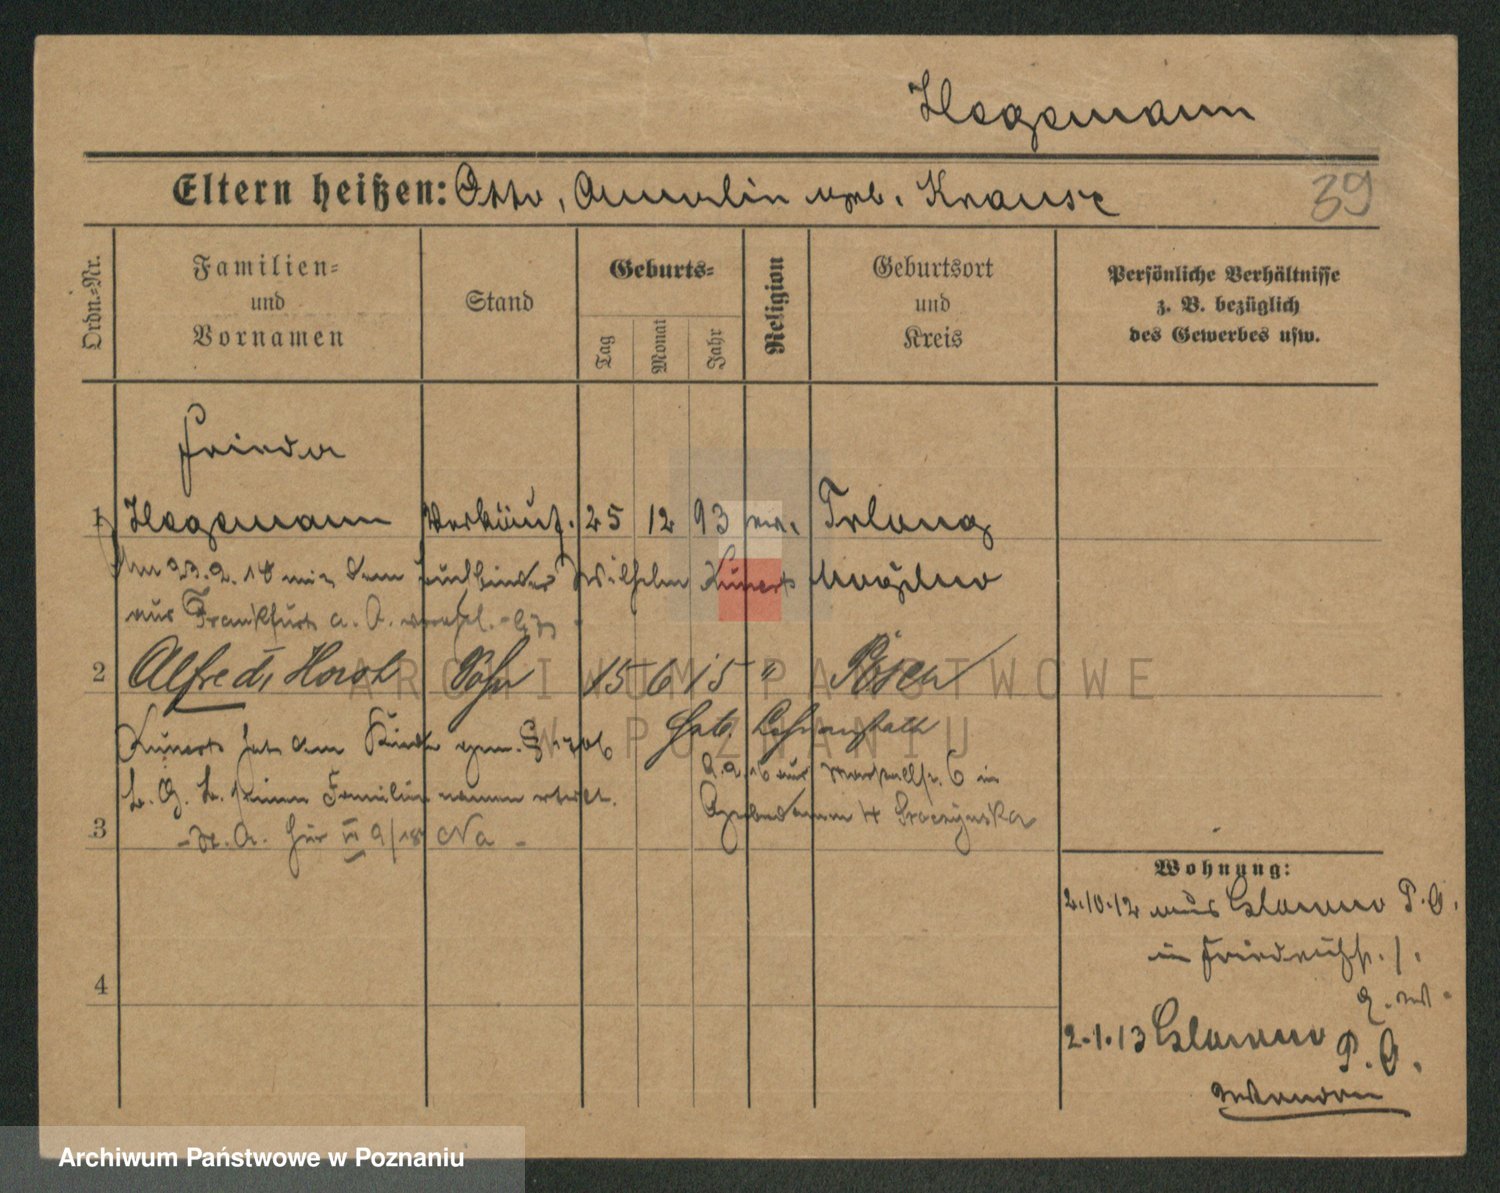 Hegemann
Eltern heißen: Otto, Aurelia geb. Krause
39
Ordn.-Nr.
Familien- und Vornamen
Stand
Geburts-
Tag
Monat
Jahr
Religion
Geburtsort und Kreis
Persönliche Verhältnisse z. B. bezüglich des Gewerbes usw.
Frieda
1 Hegemann Verkäuf. 25 12 93 ev. Trlong
Am 23.2.18 mit dem Buchbinder Wilhelm Kunert Mogilno
aus Frankfurt a. O.
2 Alfred, Horst Sohn 15 6 15 " Posen
Kunert hat dem Kinde gem. § 1706
Geb. Lehranstalt
B. G. B. seinen Familiennamen erteilt.
2.2.16 aus 6 in
Grabenamm 4
3
II 9/18 Na -
Wohnung:
2.10.12 aus Glowno P. O.
in Friedrichstr. 1.
4
2.1.13 Glowno P. O.
ARCHIWUM PAŃSTWOWE
W POZNANIU
Archiwum Państwowe w Poznaniu